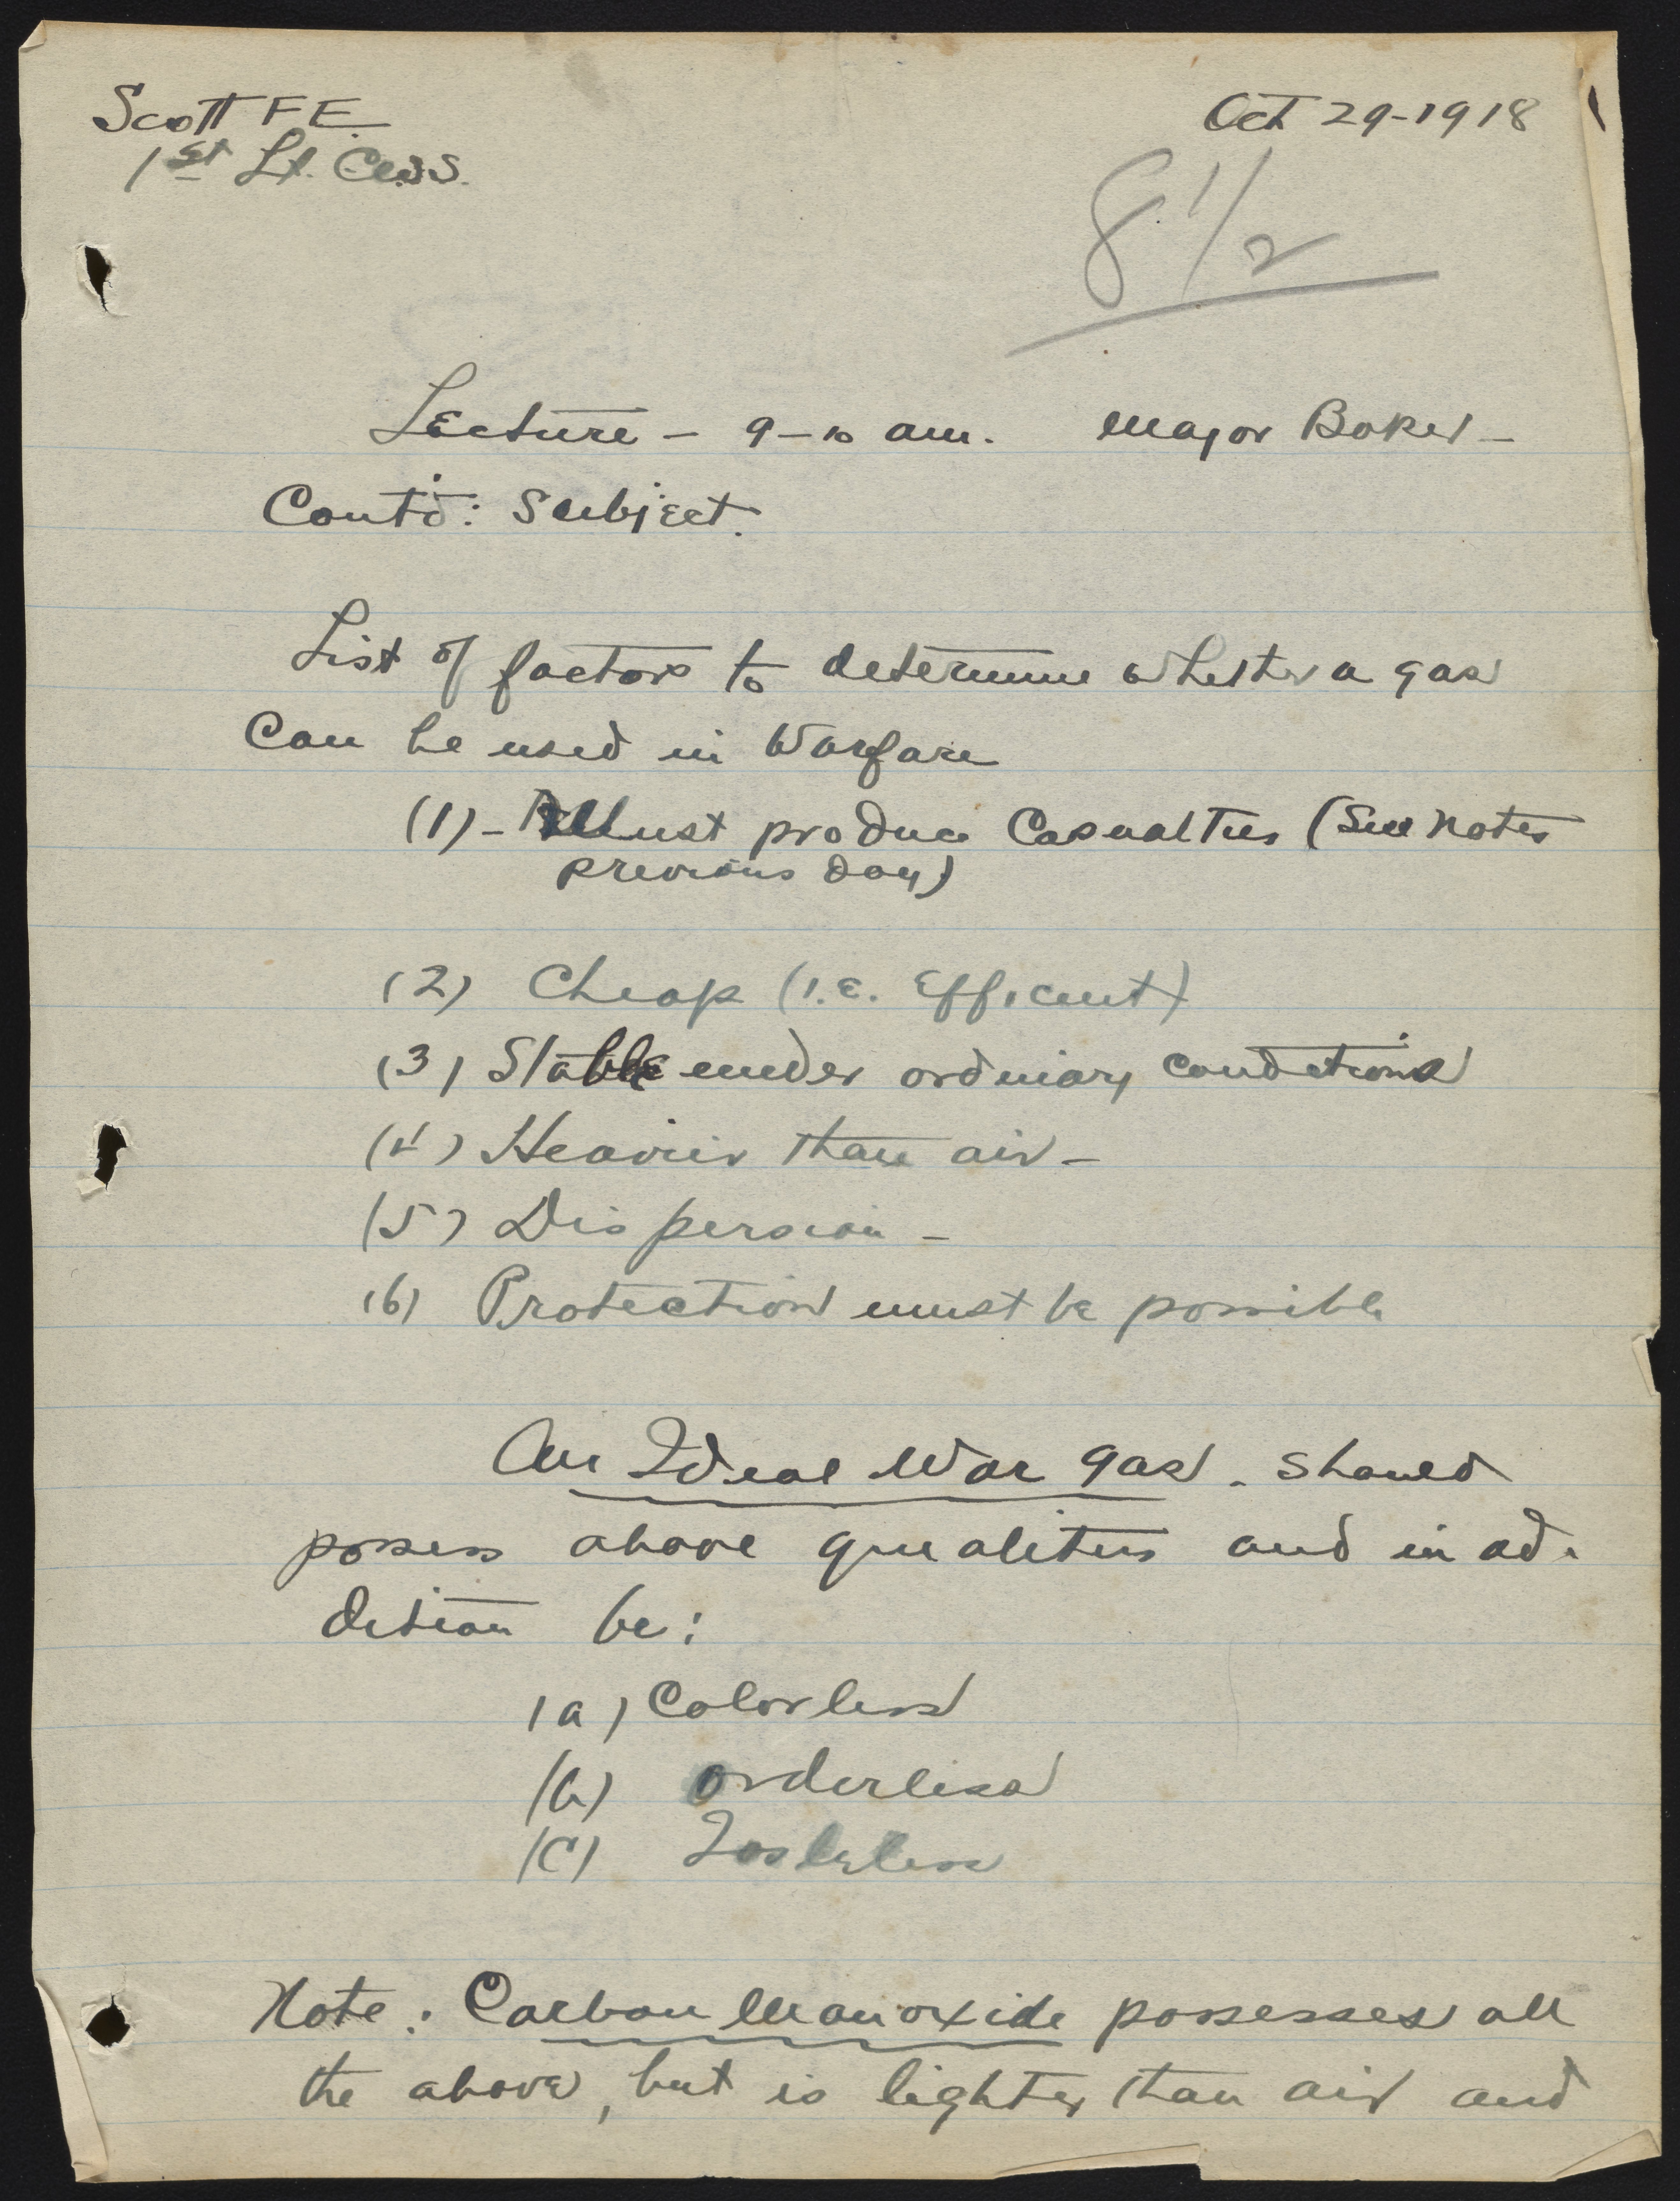 Scott F E.
1st Lt. C.W.S.
Oct 29-1918
8 1/2
Lecture - 9-10 am. Major Baker -
Cont'd: Subject.
List of factors to determine whether a gas
Can be used in Warfare
(1) - Must produce Casualties (See Notes
previous day)
(2) Cheap (I.E. Efficient)
(3) Stable under ordinary conditions
(4) Heavier than air -
(5) Dispersion -
(6) Protection must be possible
An Ideal War gas. Should
possess above qualities and in ad-
dition be:
(a) Colorless
(b) orderless
(c) Tasteless
Note: Carbon Monoxide possesses all
the above, but is lighter than air and